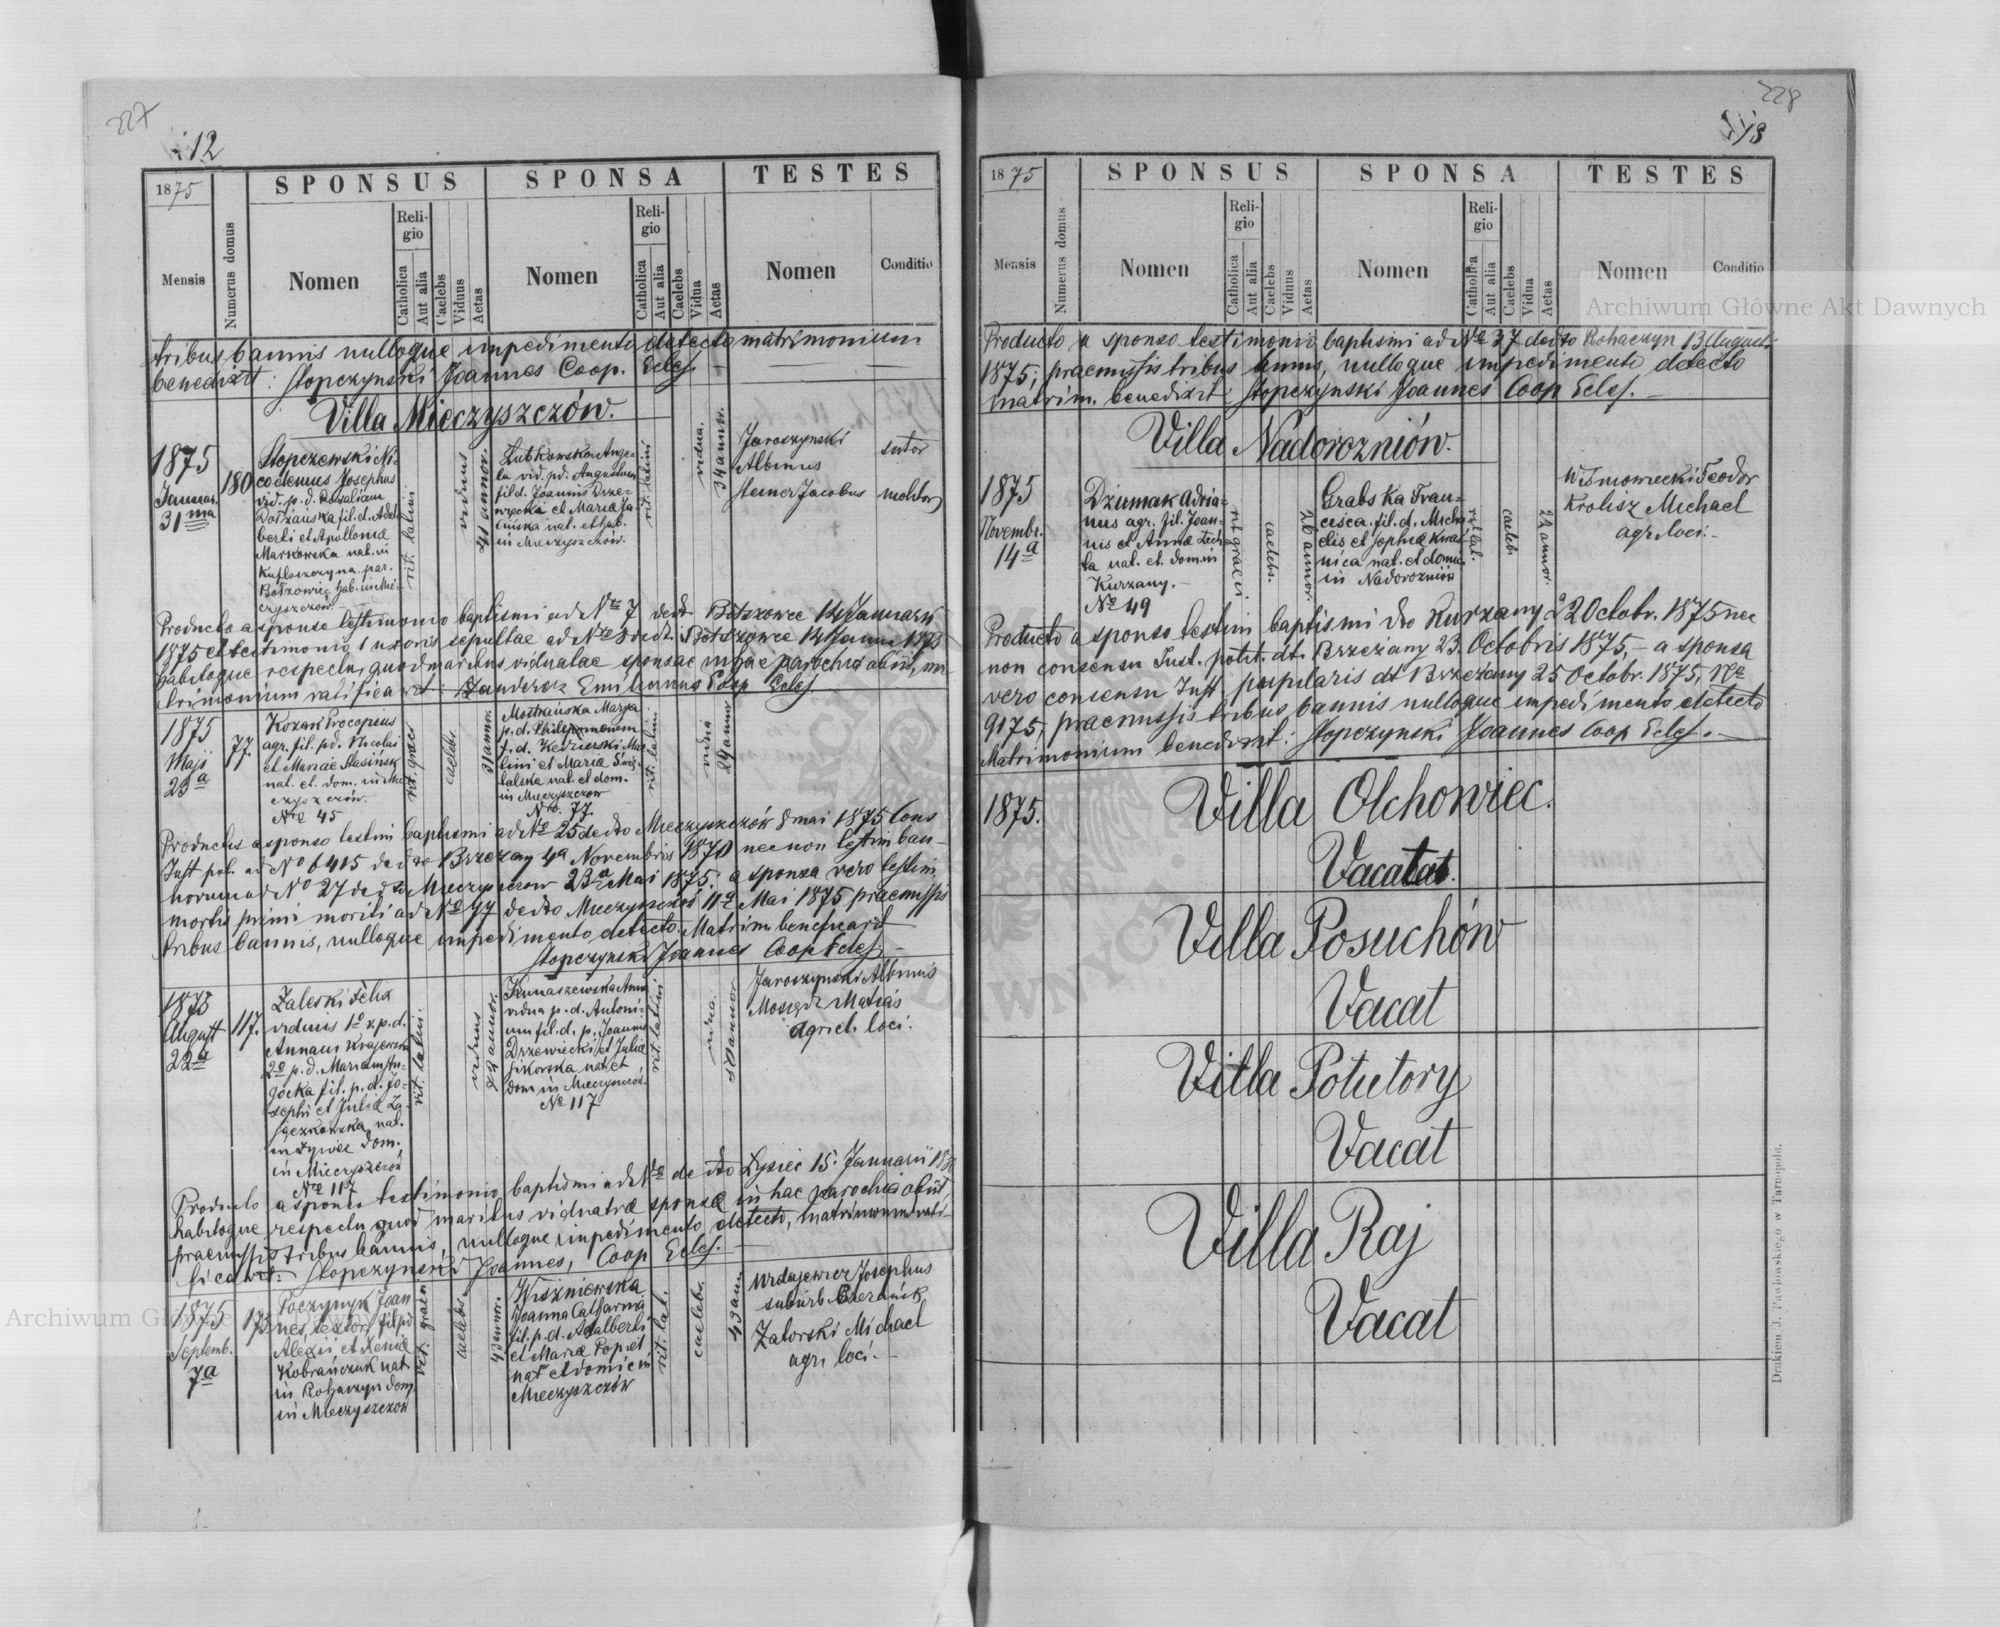 227
12
1875
SPONSUS
SPONSA
TESTES
Mensis
Numerus domus
Nomen
Religio
Catholica
Aut alia
Caelebs
Viduus
Aetas
Nomen
Religio
Catholica
Aut alia
Caelebs
Vidua
Aetas
Nomen
Conditio
tribus bannis nulloque impedimento detecto matrimonium
benedixit: Stopczynski Joannes Coop. Eccles.
Villa Mieczyszczów.
1875
Januar.
31ma
180
Josephus
vid. p. d. Rosaliam
fil. d. Adal-
berti et Apollonia
Markowska nat. in
par.
Bołszowiec hab. in Mie-
czyszczów.
rit. latini
viduus
41 annor.
Lutkowska Ange-
la vid. pd.
fil d. Joannis Drze-
wiecki et Maria
nat. et hab.
in Mieczyszczów.
rit. latini
vidua.
34 annor.
Jaroszynski
Albinus
Steiner Jacobus
sutor
molitor
Producto a sponso testimonio baptismi ad Nro 7 dedto Bołszowce 14 Januarii
1875 et testimonio 1 uxoris sepultae ad Nro 8 dedt Bołszowce 14 Janua
habitoque respectu, quod maritus viduatae sponsae in hac parochia obiit, ma-
trimonium ratificavit: Emilianus Coop Eccles.
1875
Maji
23a
77.
Kozak Procopius
agr. fil. pd. Nicolai
et Mariae Stasińsk
nat. et. dom. in Mie
czyszczów.
Nro 45
rit. graec
caelebs.
31 annor.
Marya
p. d. Philippmenum
f. d. Kedzierski Mar
tini et Maria
nat. et dom.
in Mieczyszczow
Nro. 77.
rit. latini.
vidua
29 annor
Productis a sponso testim baptismi ad No 25 dedto Mieczyszczów 8 mai 1875 Cons
Just pol. ad No 6415 dedto Brzeżany 4a Novembris 1870 nec non testim ban-
norum ad No 27 dedto Mieczyszczow 23a Mai 1875. a sponsa vero testim
mortis primi moriti ad No 97 dedto Mieczyszczów 11a Mai 1875 praemissis
tribus bannis, nulloque impedimento detecto Matrim. beneficavit
Stopczynski Joannes Coop Eccles.
1875
August
22a
117.
Zaleski Felix
viduus 1o v. p. d.
Annam Krajewska
2o p. d. Mariam
fil. p. d. Jo-
sephi et Julia
nat.
dom.
in Mieczyszczów
Nro 117
rit. latini.
viduus
annor.
Anna
vidua p. d. Antoni-
um fil. d. p. Joannis
Drzewiecki et Julia
Sikorska nat. et
dom in Mieczyszczów.
No 117
rit. latini
vidua.
annor
Jaroszynski Albinus
Matias
agricl. loci.
Producto a sponso testimonio baptismi ad Nro dedto Łysiec 15. Januarii
habitoque respectu quod maritus viduatae sponsae in hac parochia obiit,
praemissis tribus bannis, nulloque impedimento detecto, matrimonium rati-
ficavit. Stopczynski Joannes, Coop Eccles.
1875
Septemb.
7a
173
Poczynyk Joan
nes, textor, fil pd
Alexii et Xenia
Kobrańczuk nat
in Rohaczyn dom.
in Mieczyszczow
rit. graec
caelebs.
43 annor.
Wiszniewska
Joanna Catharina
fil. p. d. Adalberti
et Maria Popiel
nat et domic in
Mieczyszczów
rit. lat.
caelebs.
43 ann
Wrdajewicz Josephus
suburb.
Zatorski Michael
agr. loci.
228
13
1875
SPONSUS
SPONSA
TESTES
Mensis
Numerus domus
Nomen
Religio
Catholica
Aut alia
Caelebs
Viduus
Aetas
Nomen
Religio
Catholica
Aut alia
Caelebs
Vidua
Aetas
Nomen
Conditio
Producto a sponso testimonio baptismi ad Nro 37 dedto Rohaczyn 13 Augusti
1875; praemissis tribus bannis, nulloque impedimento detecto
matrim. benedixit: Stopczynski Joannes Coop Eccles.
Villa Nadorozniów.
1875
Novembr.
14a
Dziumak Adria-
nus agr. fil. Joan-
nis et Anna Lech
ta nat. et. dom. in
Kurzany.
No 49
rit graeci
caelebs.
26 annor.
Grabska Fran-
cisca. fil. d. Micha
elis et Sophia Kwaś-
nica nat. et domic.
in Nadorozniów
rit lat.
caelebs.
22 annor.
Wiśniowiecki Teodor
Krolisz Michael
agr. loci.
Producto a sponso testim baptismi dto Kurzany 22 Octobr. 1875 nec
non consensu Just. polit. dt. Brzeżany 23. Octobris 1875, a sponsa
vero consensu Just. pupilaris dt Brzeżany 25 Octobr. 1875, No
9175, praemissis tribus bannis nulloque impedimento detecto
Matrimonium benedixit: Stopczynski Joannes Coop Eccles.
1875.
Villa Olchowiec.
Vacatat.
Villa Posuchów
Vacat
Villa Potutory
Vacat
Villa Raj
Vacat
Drukiem J. Pawłowskiego w Tarnopolu.
Archiwum Główne Akt Dawnych
Archiwum Główne Akt Dawnych